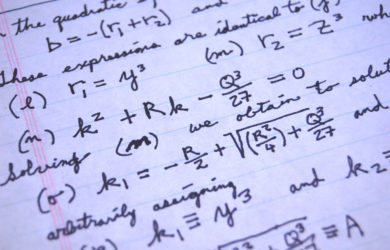 the quadratic
b = -(r₁ + r₂) and
These expressions are identical to
(l) r₁ = y³ (m) r₂ = z³
(n) k² + Rk - Q³/27 = 0
Solving (n) we obtain to
(o) k₁ = -R/2 + √((R²/4) + Q³/27) and
arbitrarily assigning
k₁ ≡ y³ and k₂ ≡
Q³/27 ≡ A